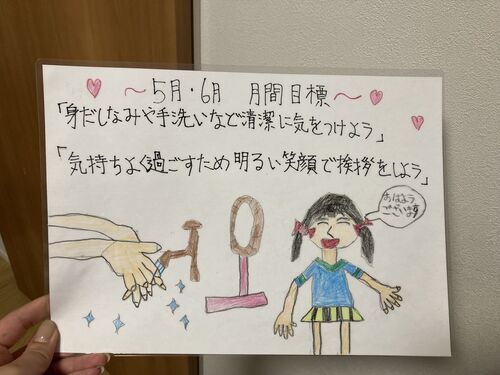 ～5月・6月 月間目標～
「身だしなみや手洗いなど清潔に気をつけよう」
「気持ちよく過ごすため明るい笑顔で挨拶をしよう」
おはよう
ございます